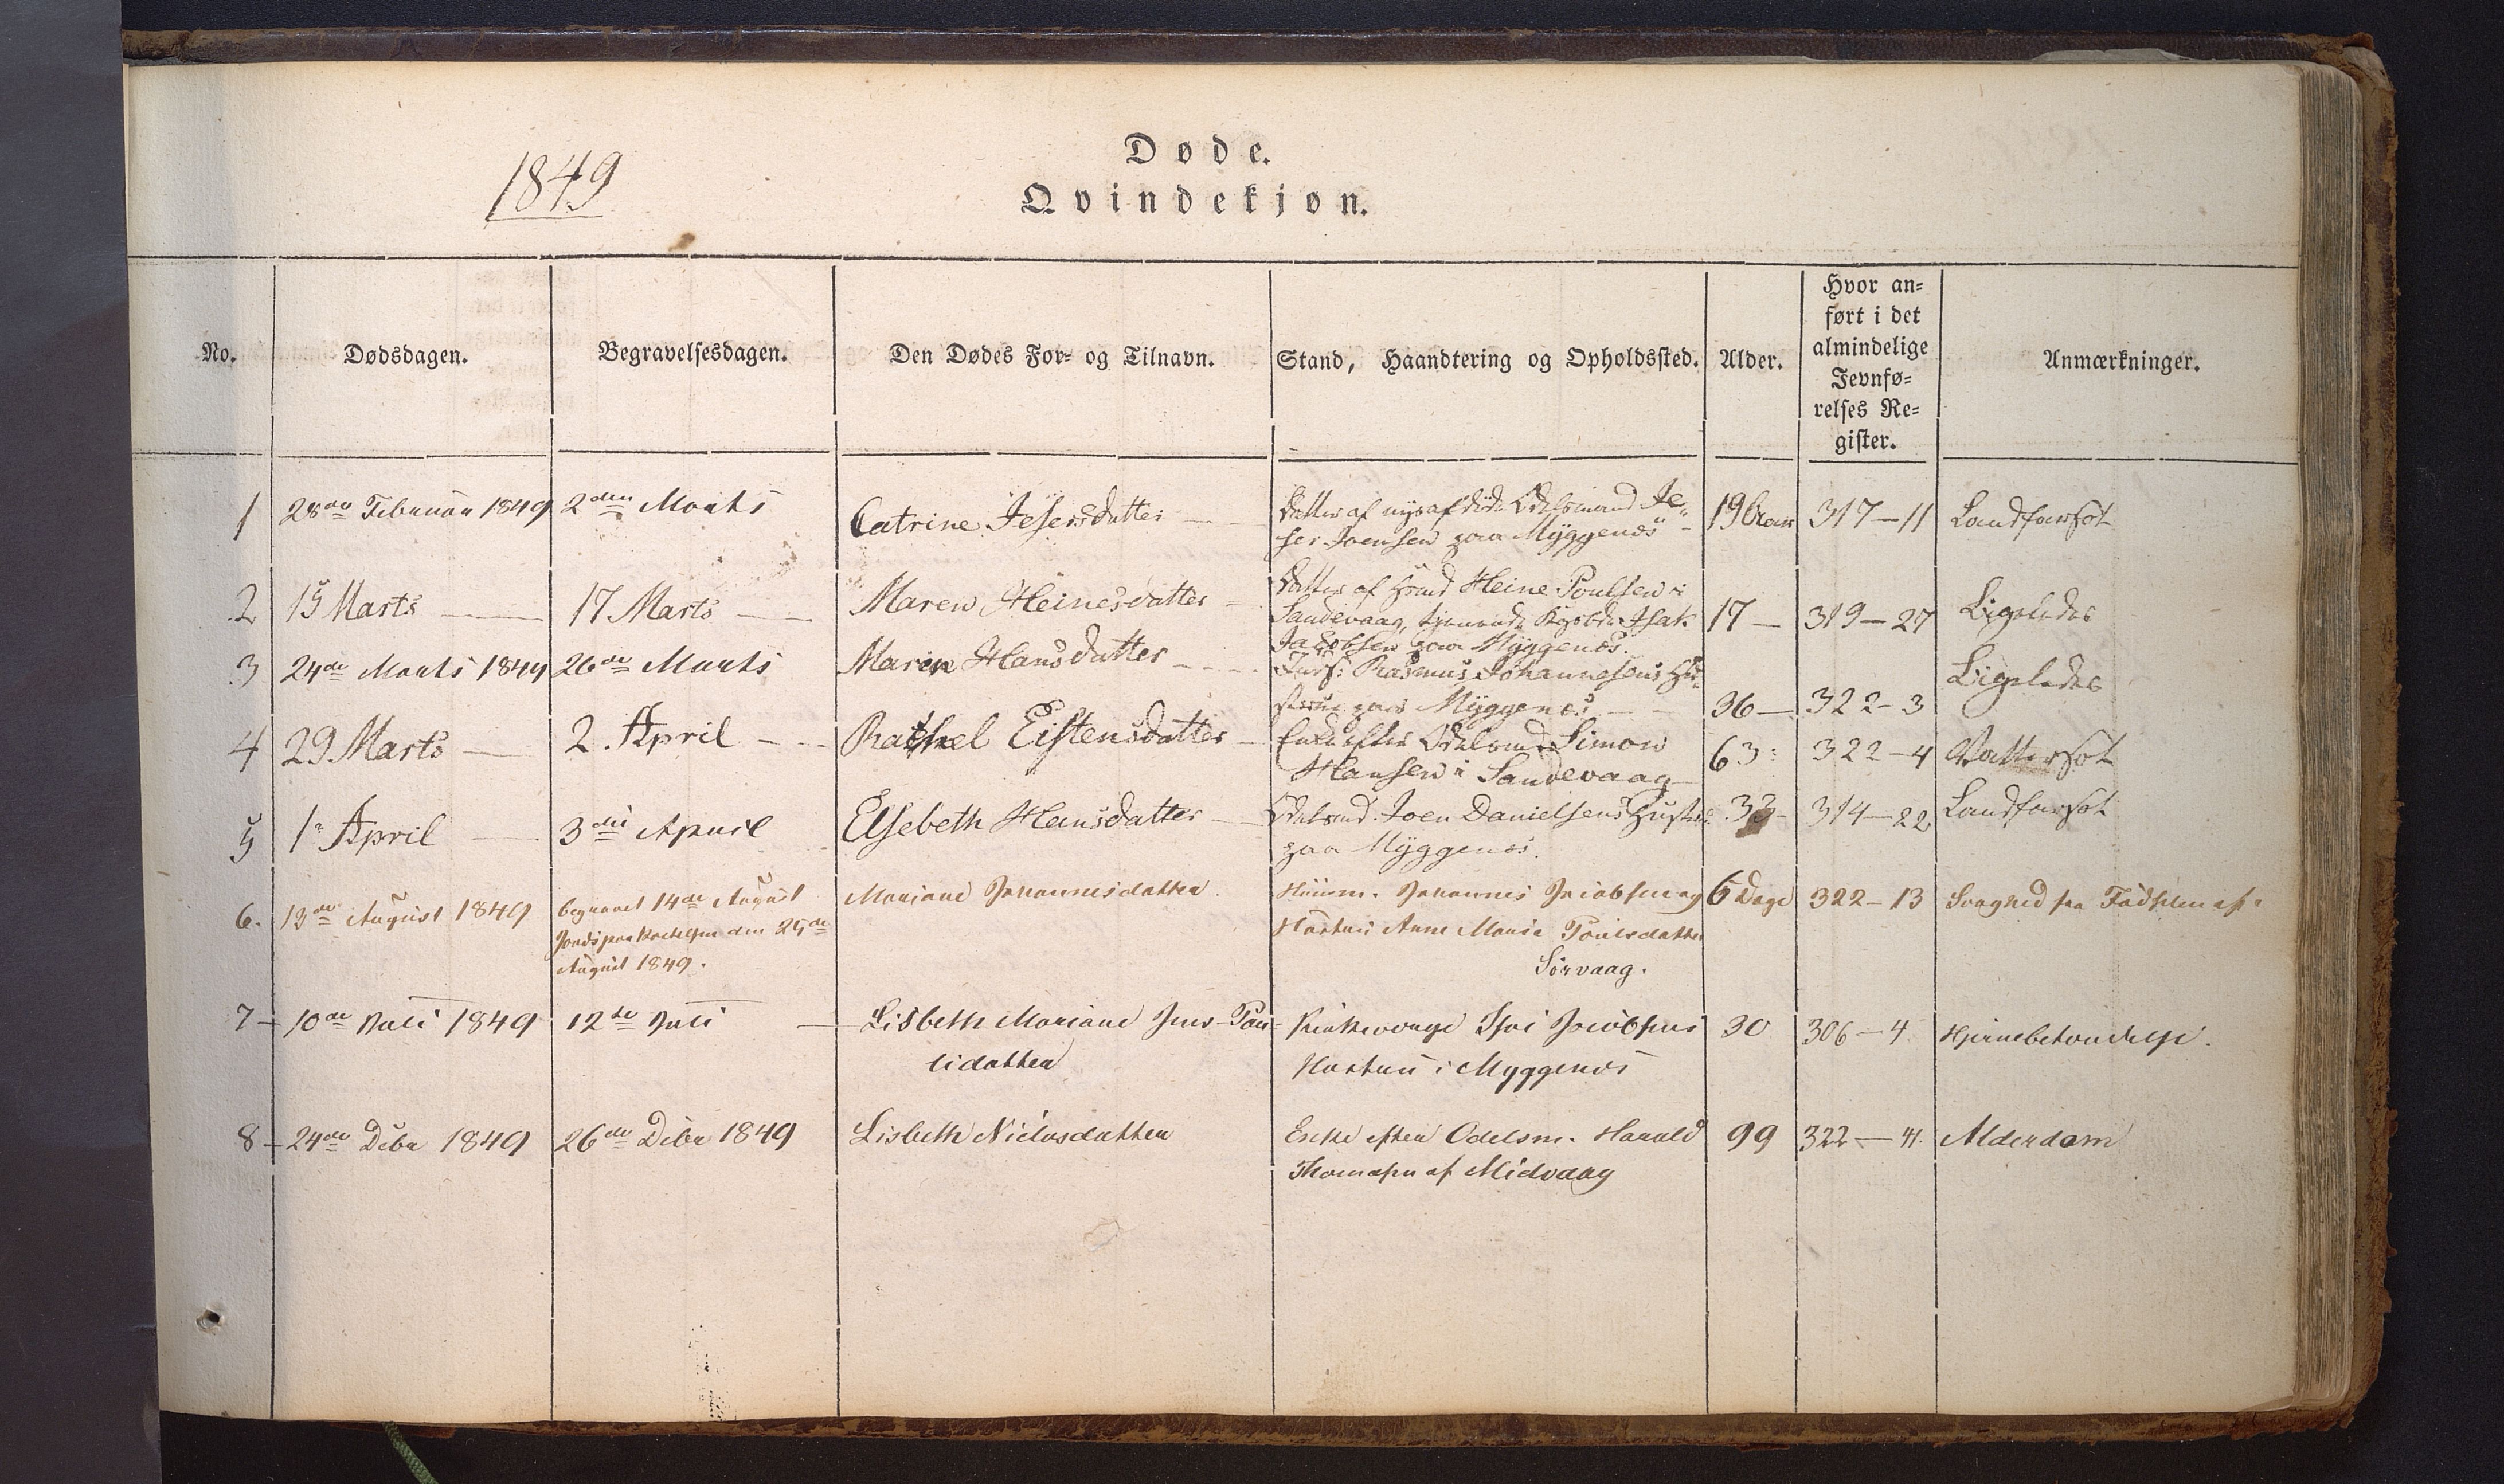 1849
Døde.
Qvindekjøn.
No.
Dødsdagen.
Begravelsesdagen.
Den Dødes For- og Tilnavn.
Stand, Haandtering og Opholdssted.
Alder.
Hvor an-
ført i det
almindelige
Jevnfø-
relses Re-
gister.
Anmærkninger.
1
28de Februar 1849
2den Marts
Catrine Jesersdatter
Datter af nys afdøde Odelsmand Je-
ser Joensen paa Myggenæs
19 Aar
317-11
Landfarsot
2
15 Marts
17 Marts
Maren Heinesdatter
Datter af Huusmd Heine Poulsen i
Sandevaag, tjenende Kgsbd. Isak
Jakobsen paa Myggenæs.
17
319-27
Ligeledes
3
24de Marts 1849
26de Marts
Maren Hansdatter
Rasmus Johannesens Hu-
strue paa Myggenæs
36
322-3
Ligeledes
4
29 Marts
2. April
Rachel Eistensdatter
Enke efter Odelsmd Simon
Hansen i Sandevaag
63
322-4
Vattersot
5
1. April
3die April
Elsebeth Hansdatter
Odelsmd. Joen Danielsens Hustrue
paa Myggenæs.
33
314-22
Landfarsot
6.
13de August 1849
begravet 14de August
Jordspaakastelsen den 25de
August 1849.
Mariane Johannesdatter
Huusm. Johannes Jacobsen og
Hustru Anne Maria Poulsdatter
Sørvaag.
6 Dage
322-13
Svaghed fra Fødselen af.
7
10de Juli 1849
12te Juli
Lisbeth Mariane Jens-Pou-
lsdatter
Kirkeværge Isai Jacobsens
Hustru i Myggenæs
30
306-4
Hjernebetændelse.
8
24de Decbr 1849
26de Decbr 1849
Lisbeth Niclasdatter
Enke efter Odelsm. Harald
Thomasen af Midvaag
99
322-4.
Alderdom